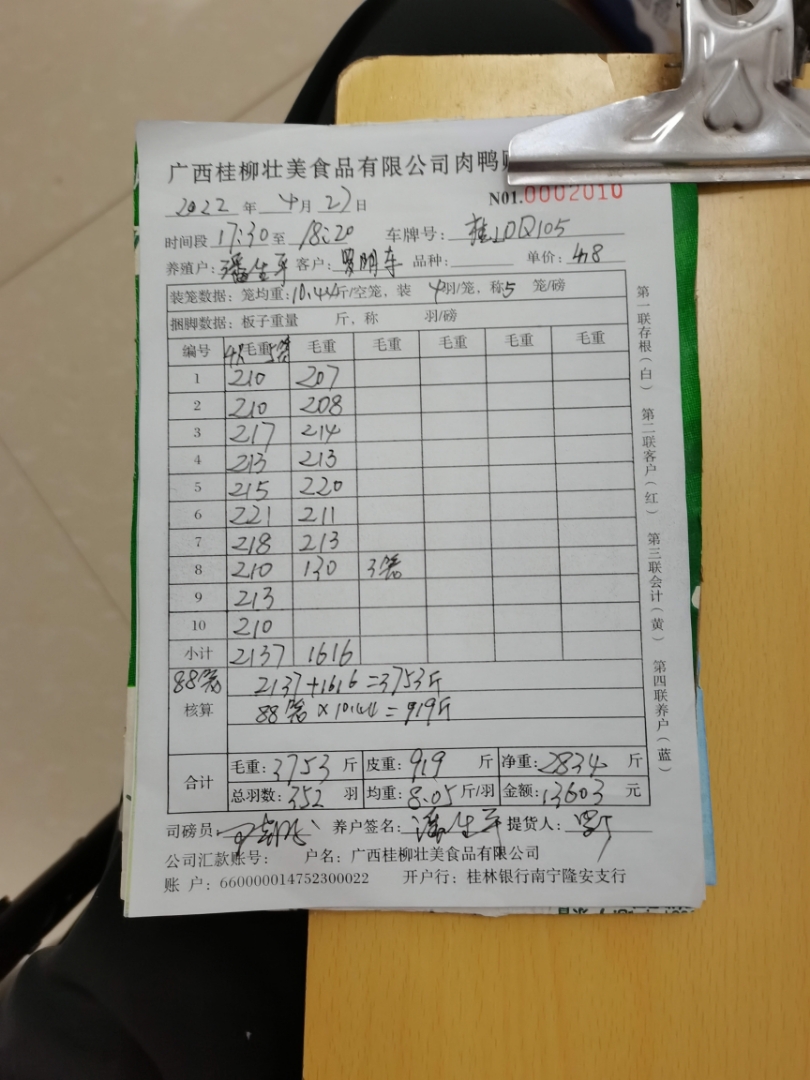 广西桂柳壮美食品有限公司肉鸭
2022 年 4 月 27 日 N01.0002010
时间段 17:30 至 18:20 车牌号: 桂
养殖户: 潘生平 客户: 品种: 单价: 4.8
装笼数据: 笼均重: 10.44斤/空笼, 装 4羽/笼, 称5 笼/磅
捆脚数据: 板子重量 斤, 称 羽/磅
编号 毛重 毛重 毛重 毛重 毛重 毛重
1 210 207
2 210 208
3 217 214
4 213 213
5 215 220
6 221 211
7 218 213
8 210 130 3笼
9 213
10 210
小计 2137 1616
88笼 2137+1616=3753斤
核算 88笼×10.44=919斤
合计 毛重: 3753 斤 皮重: 919 斤 净重: 2834 斤
总羽数: 352 羽 均重: 8.05斤/羽 金额: 13603 元
司磅员: 养户签名: 潘生平 提货人:
公司汇款账号: 户名: 广西桂柳壮美食品有限公司
账 户: 660000014752300022 开户行: 桂林银行南宁隆安支行
第一联存根(白) 第二联客户(红) 第三联会计(黄) 第四联养户(蓝)